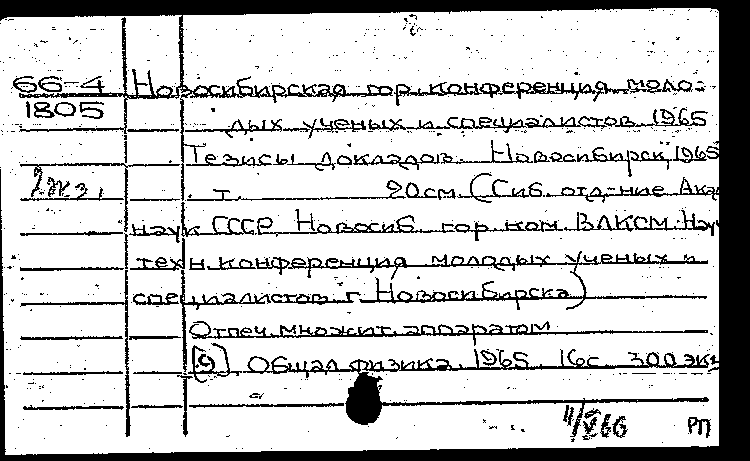 66-4 Новосибирская гор. конференция моло-
1805 дых ученых и специалистов. 1965
Тезисы докладов. Новосибирск, 1965
1 экз. т. 20см. (Сиб. отд-ние Акад
наук СССР. Новосиб. гор. ком. ВЛКСМ. Науч
техн. конференция молодых ученых и
специалистов г. Новосибирска)
Отпеч. множит. аппаратом
[9]. Общая физика. 1965. 16с. 300 экз
4/V 66 РП